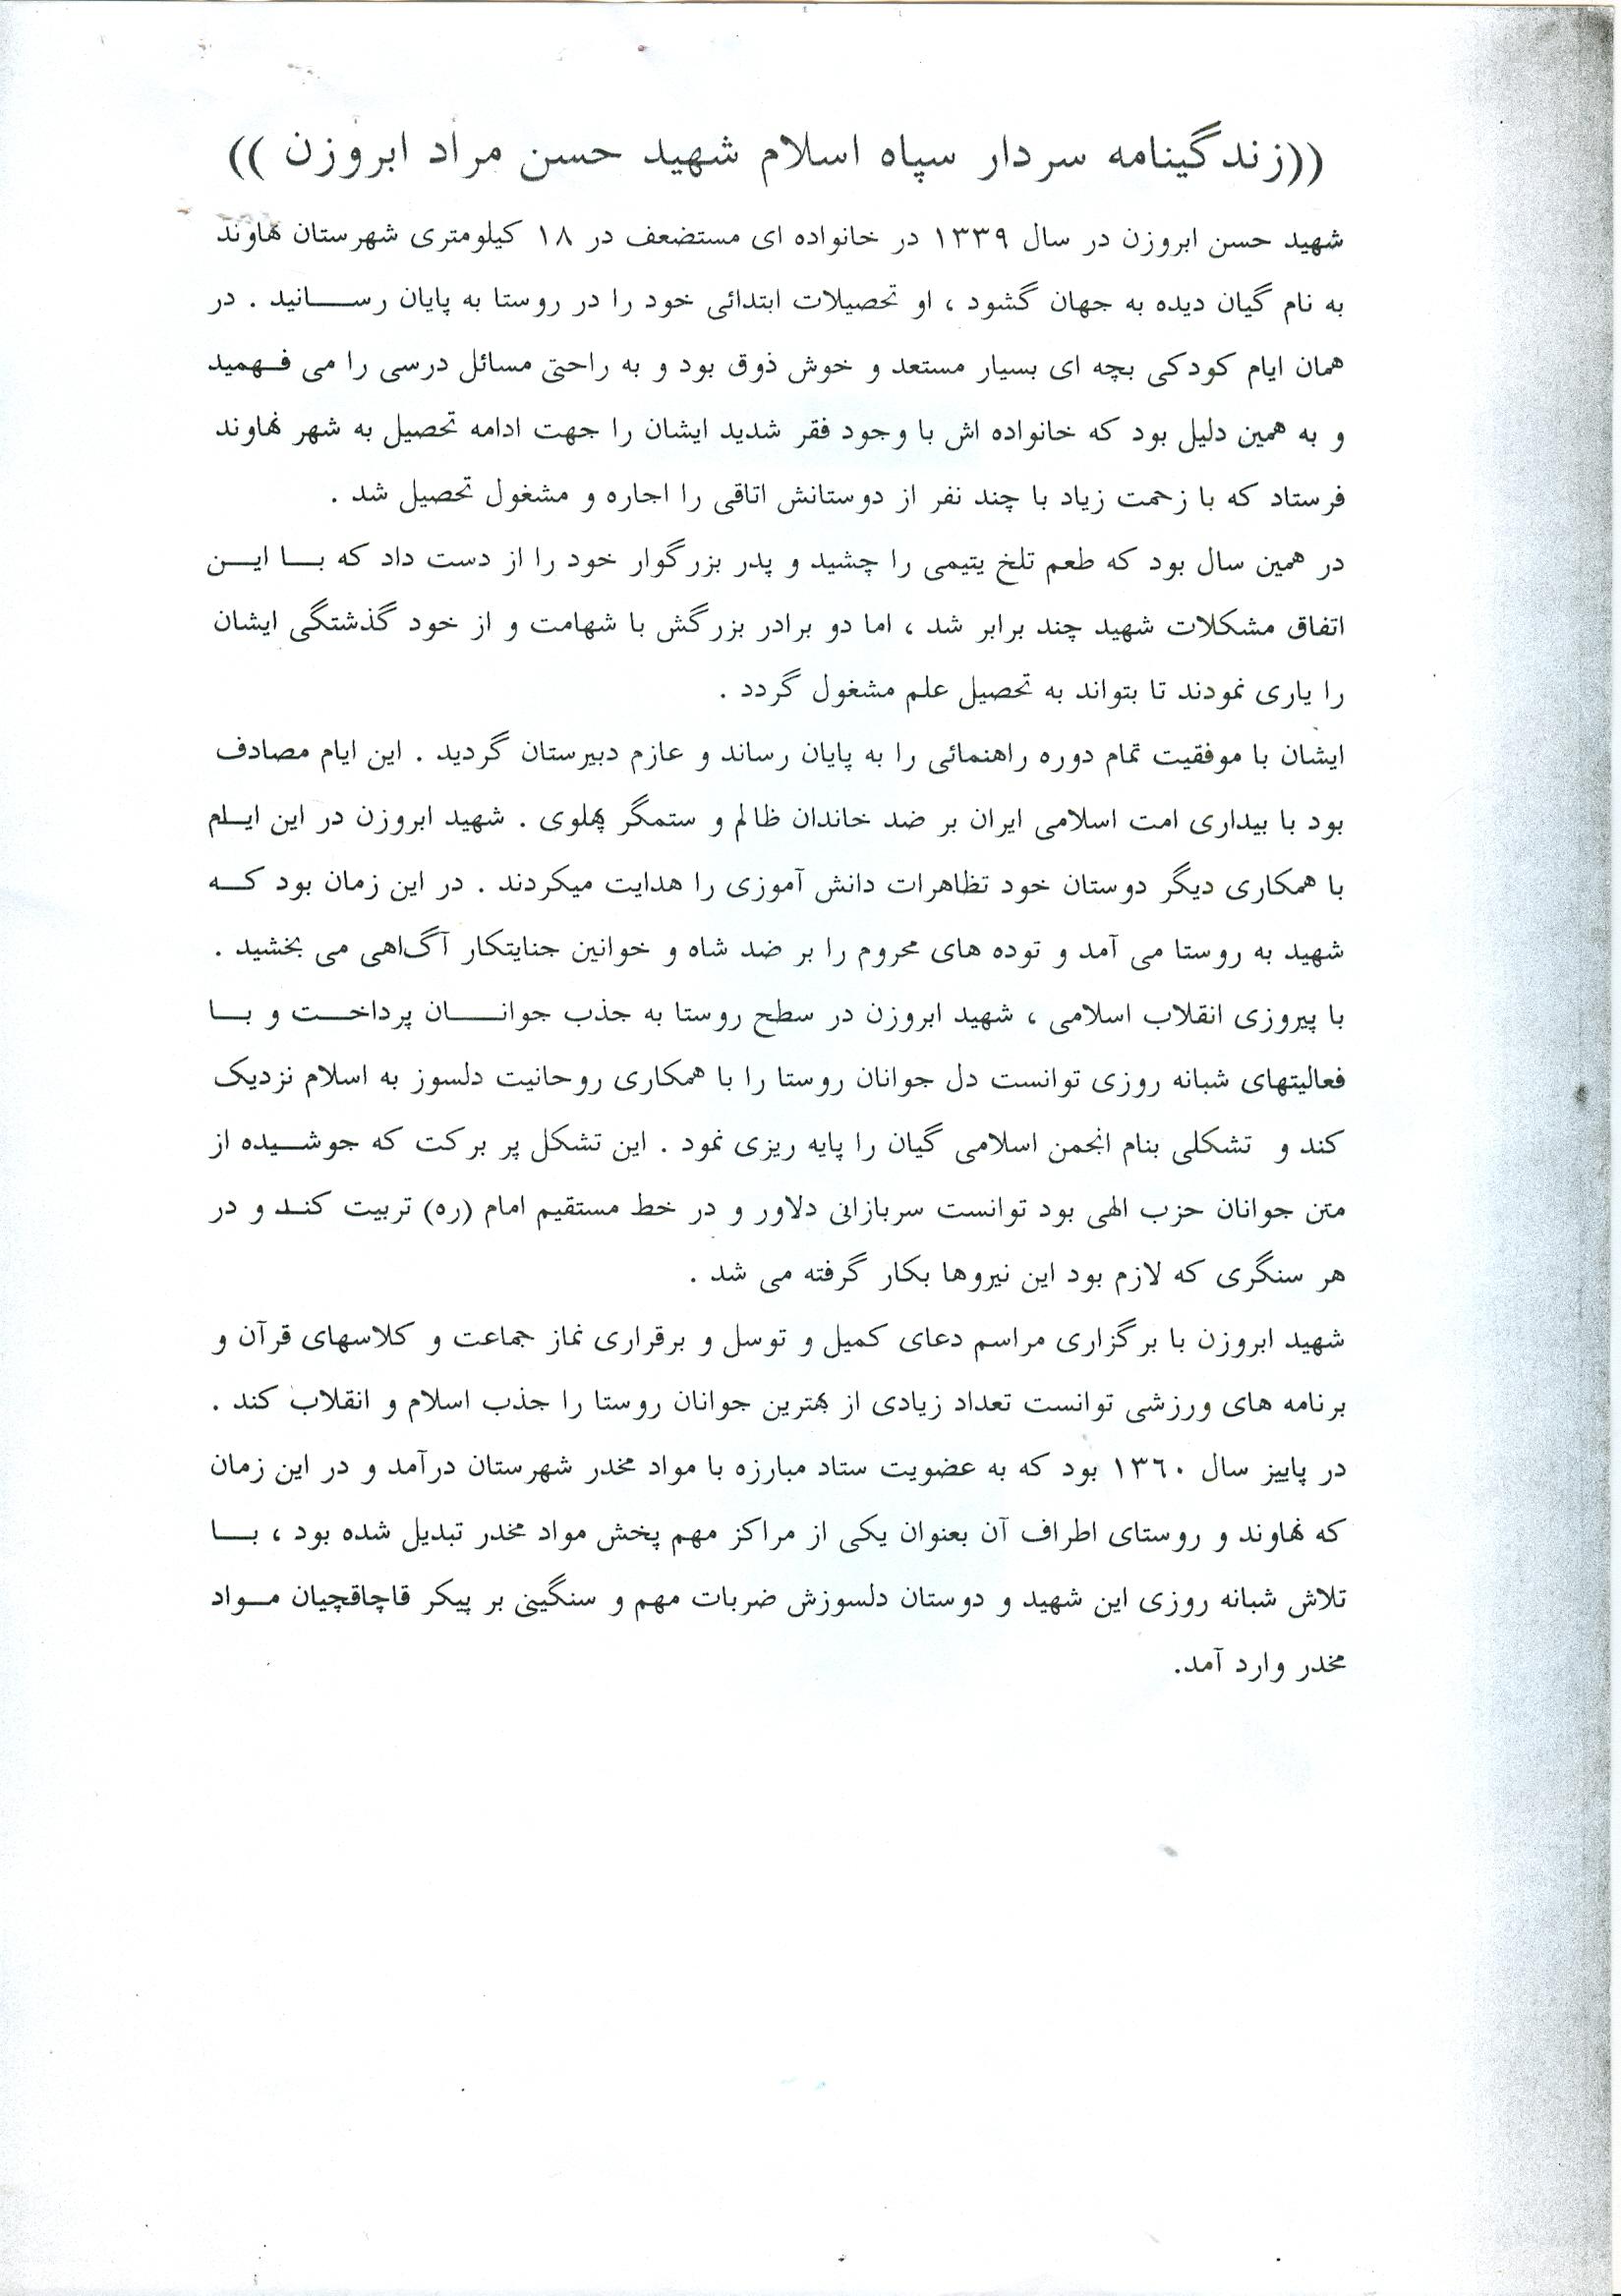 ((زندگینامه سردار سپاه اسلام شهید حسن مراد ابروزن ))
شهید حسن ابروزن در سال ۱۳۳۹ در خانواده ای مستضعف در ۱۸ کیلومتری شهرستان نهاوند
به نام گیان دیده به جهان گشود ، او تحصیلات ابتدائی خود را در روستا به پایان رسانید . در
همان ایام کودکی بچه ای بسیار مستعد و خوش ذوق بود و به راحتی مسائل درسی را می فهمید
و به همین دلیل بود که خانواده اش با وجود فقر شدید ایشان را جهت ادامه تحصیل به شهر نهاوند
فرستاد که با زحمت زیاد با چند نفر از دوستانش اتاقی را اجاره و مشغول تحصیل شد .
در همین سال بود که طعم تلخ یتیمی را چشید و پدر بزرگوار خود را از دست داد که با این
اتفاق مشکلات شهید چند برابر شد ، اما دو برادر بزرگش با شهامت و از خود گذشتگی ایشان
را یاری نمودند تا بتواند به تحصیل علم مشغول گردد .
ایشان با موفقیت تمام دوره راهنمائی را به پایان رساند و عازم دبیرستان گردید . این ایام مصادف
بود با بیداری امت اسلامی ایران بر ضد خاندان ظالم و ستمگر پهلوی . شهید ابروزن در این ایام
با همکاری دیگر دوستان خود تظاهرات دانش آموزی را هدایت میکردند . در این زمان بود که
شهید به روستا می آمد و توده های محروم را بر ضد شاه و خوانین جنایتکار آگاهی می بخشید .
با پیروزی انقلاب اسلامی ، شهید ابروزن در سطح روستا به جذب جوانان پرداخت و با
فعالیتهای شبانه روزی توانست دل جوانان روستا را با همکاری روحانیت دلسوز به اسلام نزدیک
کند و تشکلی بنام انجمن اسلامی گیان را پایه ریزی نمود . این تشکل پر برکت که جوشیده از
متن جوانان حزب الهی بود توانست سربازانی دلاور و در خط مستقیم امام (ره) تربیت کند و در
هر سنگری که لازم بود این نیروها بکار گرفته می شد .
شهید ابروزن با برگزاری مراسم دعای کمیل و توسل و برقراری نماز جماعت و کلاسهای قرآن و
برنامه های ورزشی توانست تعداد زیادی از بهترین جوانان روستا را جذب اسلام و انقلاب کند .
در پاییز سال ۱۳۶۰ بود که به عضویت ستاد مبارزه با مواد مخدر شهرستان درآمد و در این زمان
که نهاوند و روستای اطراف آن بعنوان یکی از مراکز مهم پخش مواد مخدر تبدیل شده بود ، با
تلاش شبانه روزی این شهید و دوستان دلسوزش ضربات مهم و سنگینی بر پیکر قاچاقچیان مواد
مخدر وارد آمد.